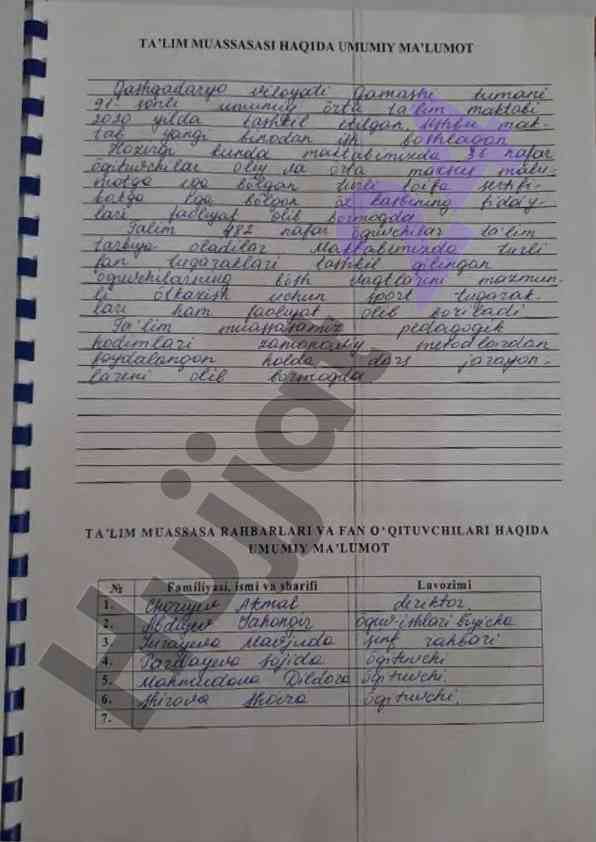 TA'LIM MUASSASASI HAQIDA UMUMIY MA'LUMOT
Qashqadaryo viloyati Qamashi tumani
91-sonli umumiy o'rta ta'lim maktabi
2020 yilda tashkil etilgan. Ushbu mak-
tab yangi binodan ish boshlagan
Hozirgi kunda maktabimizda 36 nafar
o'qituvchilar oliy va o'rta maxsus malu-
motga ega bo'lgan turli toifa sertifi-
katga ega bo'lgan o'z kasbining fidoiy-
lari faoliyat olib bormoqda
Talim 482 nafar o'quvchilar ta'lim
tarbiya oladilar Maktabimizda turli
fan tugaraklari tashkil qilingan
o'quvchilarning bo'sh vaqtlarini mazmun-
li o'tkazish uchun sport tugarak-
lari ham faoliyat olib boriladi
Ta'lim muassasamiz pedagogik
hodimlari zamonaviy metodlardan
foydalangan holda dars jarayon-
larini olib bormoqda
TA'LIM MUASSASA RAHBARLARI VA FAN O'QITUVCHILARI HAQIDA
UMUMIY MA'LUMOT
№ Familiyasi, ismi va sharifi Lavozimi
1. Choriyev Akmal direktor
2. Abdiyev Jahongir o'quv ishlari bo'yicha
3. Jurayeva Mavjuda sinf rahbari
4. Pardayeva Sojida o'qituvchi
5. Mahmudova Dildora o'qituvchi.
6. Shirova Shoira o'qituvchi.
7.
Hujjat